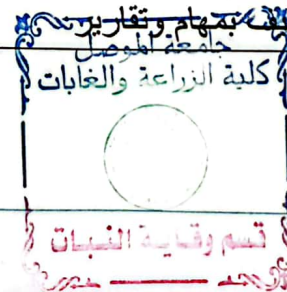 بمهام وتقارير
جامعة الموصل
كلية الزراعة والغابات
قسم وقاية النبات